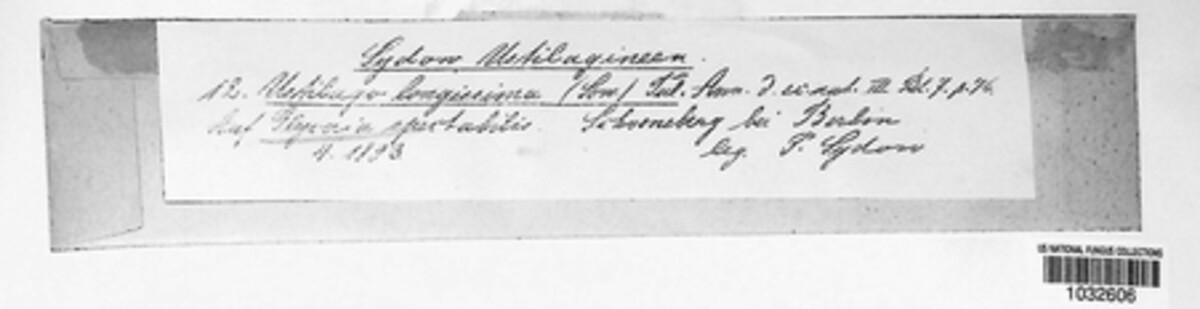 Sydow Ustilagineen.
12. Ustilago longissima (Sow) Tul. Ann. d. sc. nat. III Bd. 7. p. 76.
Auf Glyceria spectabilis. Schoeneberg bei Berlin
4. 1893 leg. P. Sydow
US NATIONAL FUNGUS COLLECTIONS
1032606